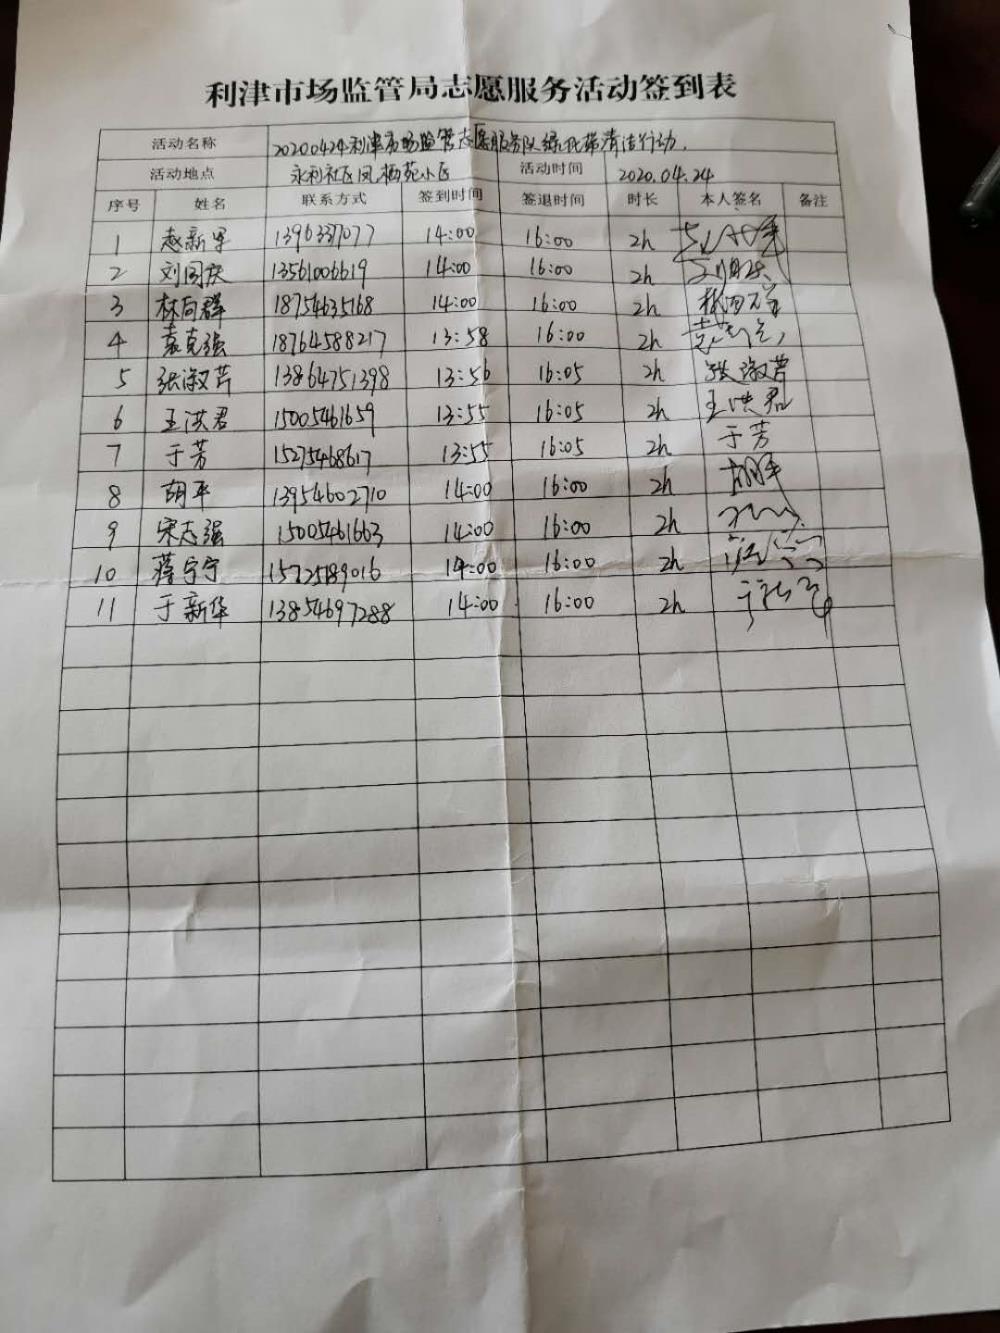 利津市场监管局志愿服务活动签到表
活动名称 20200424利津市场监管志愿服务队绿化带清洁行动.
活动地点 永利社区凤栖苑小区 活动时间 2020.04.24
序号 姓名 联系方式 签到时间 签退时间 时长 本人签名 备注
1 赵新军 1396337077 14:00 16:00 2h
2 刘国庆 13561006619 14:00 16:00 2h
3 林向群 18754635168 14:00 16:00 2h 林向群
4 袁克强 18764588217 13:58 16:00 2h
5 张淑芹 13864751398 13:56 16:05 2h 张淑芹
6 王洪君 15005461659 13:55 16:05 2h 王洪君
7 于芳 15275468617 13:55 16:05 2h 于芳
8 胡平 13954602710 14:00 16:00 2h 胡平
9 宋志强 15005461663 14:00 16:00 2h
10 蒋宁宁 15725189016 14:00 16:00 2h
11 于新华 13854697288 14:00 16:00 2h